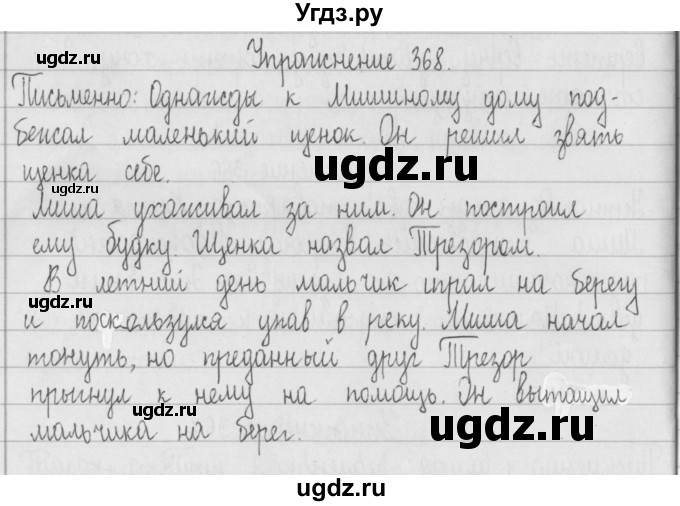 Угдз.ру
Упражнение 368.
ugdz.ru
Письменно: Однажды к Мишиному дому под-
бежал маленький щенок. Он решил звять
ugdz.ru
щенка себе.
ugdz.ru
Миша ухаживал за ним. Он построил
ему будку. Щенка назвал Трезором.
ugdz.ru
В летний день мальчик играл на берегу
ugdz.ru
и поскользулся упав в реку. Миша начал
тонуть, но преданный друг Трезор
прыгнул к нему на помощь. Он вытащил
ugdz.ru
мальчика на берег.
ugdz.ru
ugdz.ru